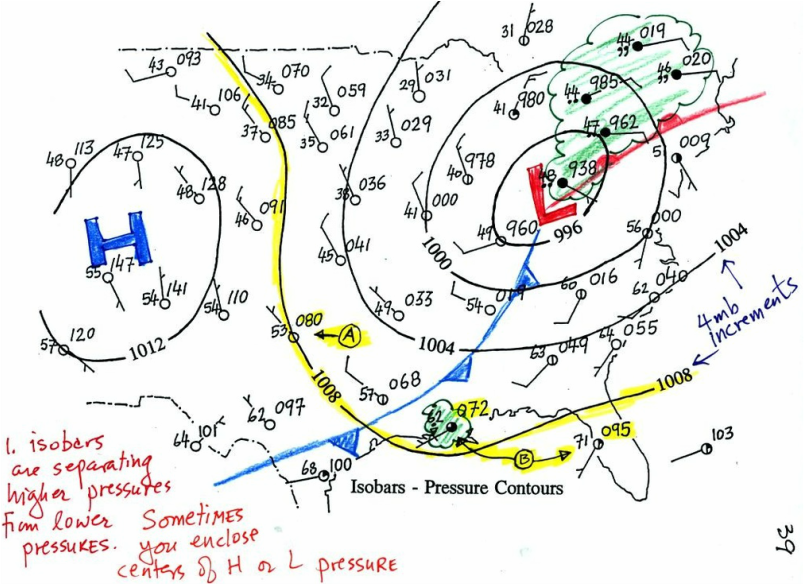 31 028
44 019
43 093
34 070
46 020
29 031
44 985
059
32
41 106
41 980
37 085
47 962
35 061
33 029
009
5
48 113
47 125
978
40
48 938
48 128
38 036
L
46 091
41 000
000
56
49 960
996
1004
H
45 041
1000
55 147
60 016
040
62
54 019
54 141
54 110
49 033
4mb
increments
53 080
A
1004
64 055
57 120
1012
63 049
1008
57 068
1008
62 097
072
64 101
71 095
103
B
68 100
1. isobars
are separating
higher pressures
from lower
pressures.
Sometimes
you enclose
centers of H or L pressure
Isobars - Pressure Contours
39